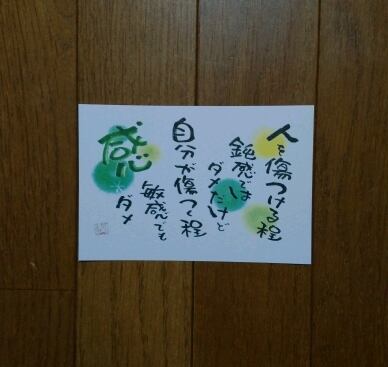 人を傷つける程
鈍感では
ダメだけど
自分が傷つく程
敏感でも
ダメ
感